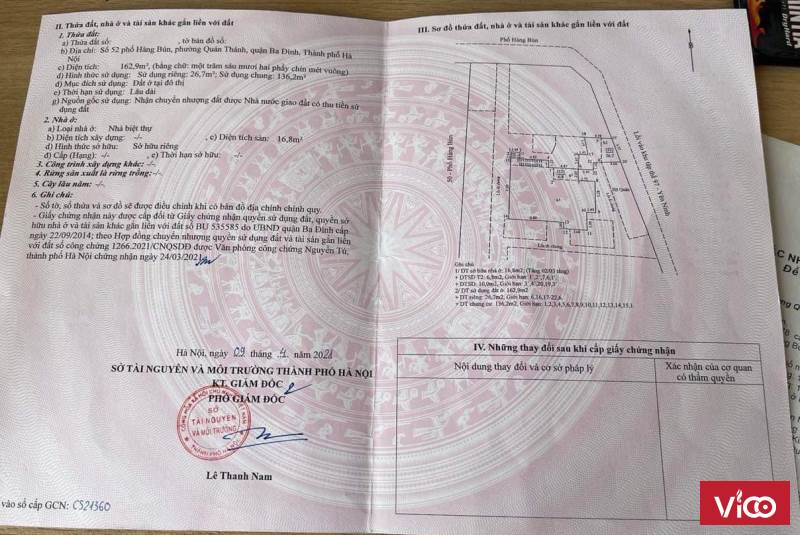 II. Thửa đất, nhà ở và tài sản khác gắn liền với đất
1. Thửa đất:
a) Thửa đất số: , tờ bản đồ số:
b) Địa chỉ: Số 52 phố Hàng Bún, phường Quán Thánh, quận Ba Đình, Thành phố Hà
Nội
c) Diện tích: 162,9m², (bằng chữ: một trăm sáu mươi hai phẩy chín mét vuông)
d) Hình thức sử dụng: Sử dụng riêng: 26,7m²; Sử dụng chung: 136,2m²
đ) Mục đích sử dụng: Đất ở tại đô thị
e) Thời hạn sử dụng: Lâu dài
g) Nguồn gốc sử dụng: Nhận chuyển nhượng đất được Nhà nước giao đất có thu tiền sử
dụng đất
2. Nhà ở:
a) Loại nhà ở: Nhà biệt thự
b) Diện tích xây dựng: -/- , c) Diện tích sàn: 16,8m²
d) Hình thức sở hữu: Sở hữu riêng
đ) Cấp (Hạng): -/- , e) Thời hạn sở hữu: -/-
3. Công trình xây dựng khác: -/-
4. Rừng sản xuất là rừng trồng: -/-
5. Cây lâu năm: -/-
6. Ghi chú:
- Số tờ, số thửa và sơ đồ sẽ được điều chỉnh khi có bản đồ địa chính chính quy.
- Giấy chứng nhận này được cấp đổi từ Giấy chứng nhận quyền sử dụng đất, quyền sở
hữu nhà ở và tài sản khác gắn liền với đất số BU 535585 do UBND quận Ba Đình cấp
ngày 22/09/2014; theo Hợp đồng chuyển nhượng quyền sử dụng đất và tài sản gắn liền
với đất số công chứng 1266.2021/CNQSDĐ được Văn phòng công chứng Nguyễn Tú,
thành phố Hà Nội chứng nhận ngày 24/03/2021
Hà Nội, ngày 09 tháng 4 năm 2021
SỞ TÀI NGUYÊN VÀ MÔI TRƯỜNG THÀNH PHỐ HÀ NỘI
KT. GIÁM ĐỐC
PHÓ GIÁM ĐỐC
SỞ
TÀI NGUYÊN
VÀ MÔI TRƯỜNG
Lê Thanh Nam
vào sổ cấp GCN: CS21360
III. Sơ đồ thửa đất, nhà ở và tài sản khác gắn liền với đất
Phố Hàng Bún
50 - Phố Hàng Bún
Lối vào khu tập thể 97 - Yên Ninh
Lối đi chung
Ghi chú
1/ DT sở hữu nhà ở: 16,8m2, (Tầng 02/03 tầng)
+ DTSD T2: 6,8m2, Giới hạn: 1',2',7,6,1'.
+ DTSD: 10,0m2, Giới hạn: 3',4',20,19,3'
2/ DT sử dụng đất ở: 162,9m2
+ DT riêng: 26,7m2, Giới hạn: 6,16,17-22,6
+ DT chung cư: 136,2m2, Giới hạn: 1,2,3,4,5,6,7,8,9,10,11,12,13,14,15,1.
IV. Những thay đổi sau khi cấp giấy chứng nhận
Nội dung thay đổi và cơ sở pháp lý
Xác nhận của cơ quan
có thẩm quyền
VICO